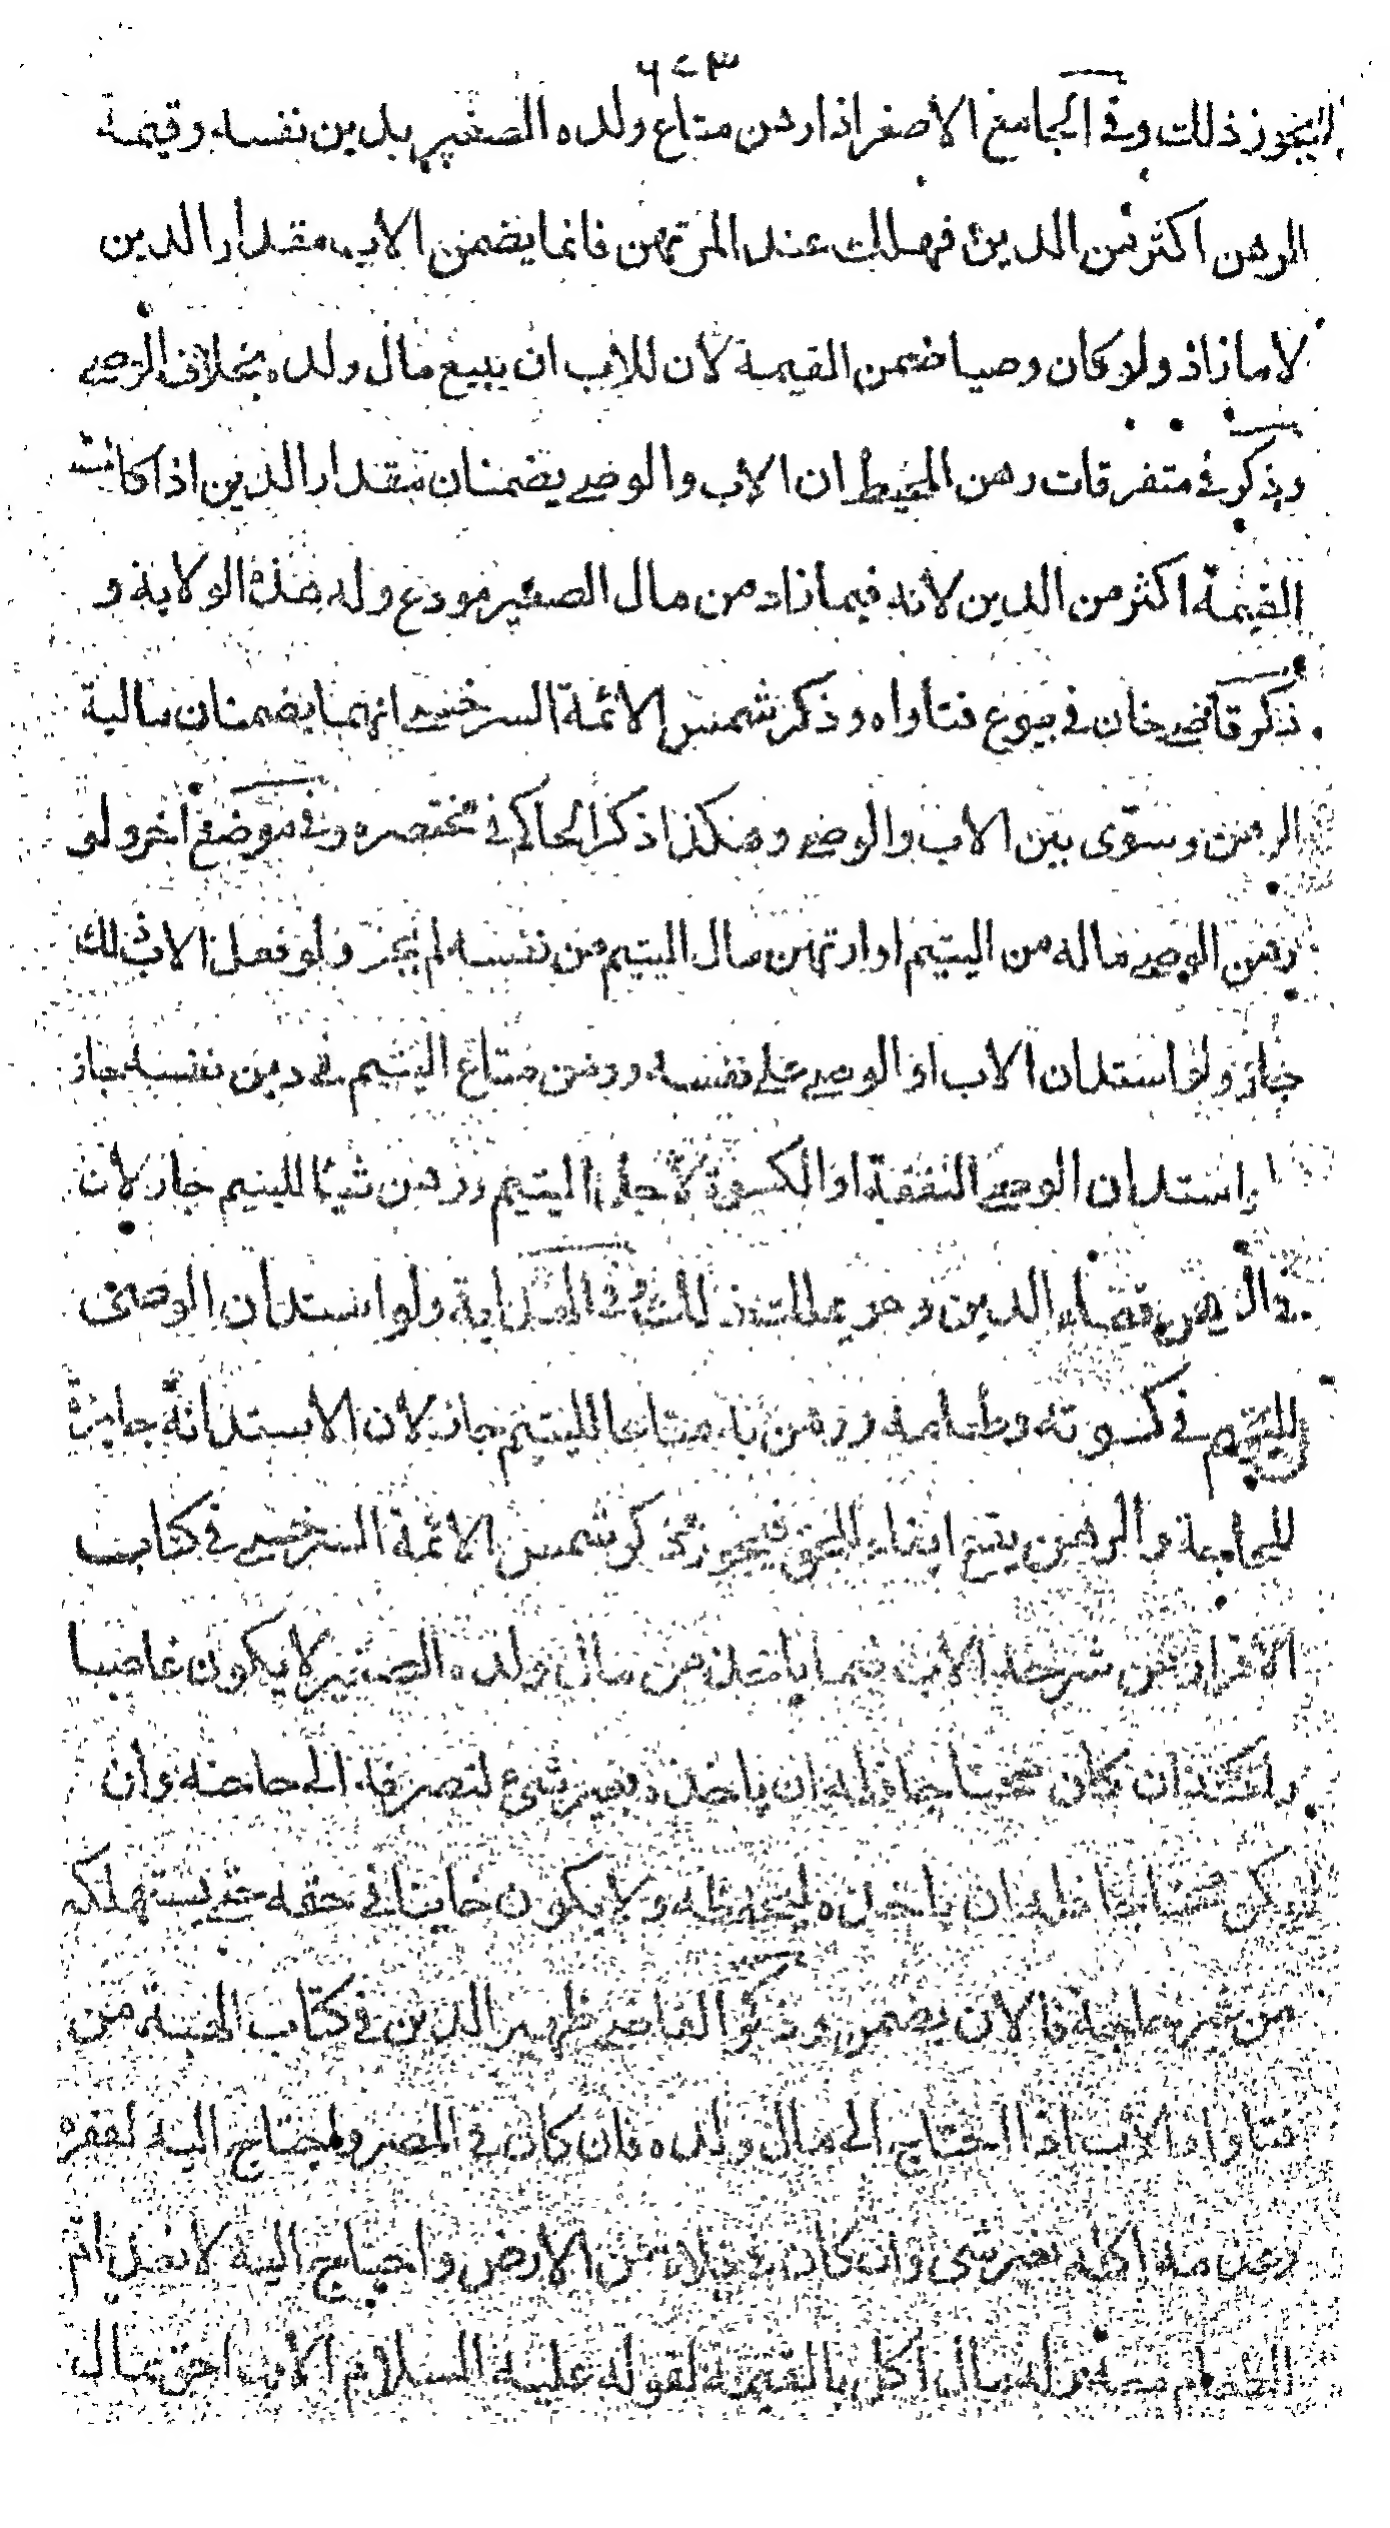 ٦٧٣
لا يجوز ذلك وفي الجامع الاصغر اذا رهن متاع ولده الصغير بدين نفسه وقيمة
الرهن اكثر من الدين فهلك عند المرتهن فانما يضمن الاب مقدار الدين
لا ما زاد ولو كان وصيا ضمن القيمة لان للاب ان يبيع مال ولده بخلاف الوصي
وذكر في متفرقات رهن المحيط ان الاب والوصي يضمنان مقدار الدين اذا كانت
القيمة اكثر من الدين لانه فيما زاد من مال الصغير مودع وله هذه الولاية و
ذكر قاضي خان في بيوع فتاواه وذكر شمس الائمة السرخسي انهما يضمنان مالية
الرهن وسوى بين الاب والوصي وهكذا ذكر الحاكم في مختصره وفي موضع اخر ولو
رهن الوصي ماله من اليتيم او ارتهن مال اليتيم من نفسه لم يجز ولو فعل الاب ذلك
جاز ولو استدان الاب او الوصي على نفسه ورهن متاع اليتيم في دين نفسه جاز
واستدان الوصي النفقة او الكسوة لاجل اليتيم ورهن شيئا لليتيم جاز لان
في الرهن قضاء الدين وهو يملك ذلك وفي الهداية ولو استدان الوصي
لليتيم في كسوته وطعامه ورهن به متاعا لليتيم جاز لان الاستدانة جايزة
للحاجة والرهن يقع ايفاء للحق فيجوز ذكر شمس الائمة السرخسي في كتاب
الاقرار من شرحه الاب فيما ياخذ من مال ولده الصغير لا يكون غاصبا
ولكنه ان كان محتاجا فله ان ياخذه بغير شيء ليصرفه الى حاجته وان
لم يكن محتاجا فله ان ياخذه ليحفظه ولا يكون جانيا في حقه حتى يستهلكه
من غير حاجة فالان يضمن وذكر القاضي ظهير الدين في كتاب الهبة من
فتاواه الاب اذا احتاج الى مال ولده فان كان في المصر واحتاج اليه لفقره
اكله بغير شيء وان كان في فلاة من الارض واحتاج اليه
الطعام معه وله مال اكل بالقيمة لقوله عليه السلام الاب احق بمال